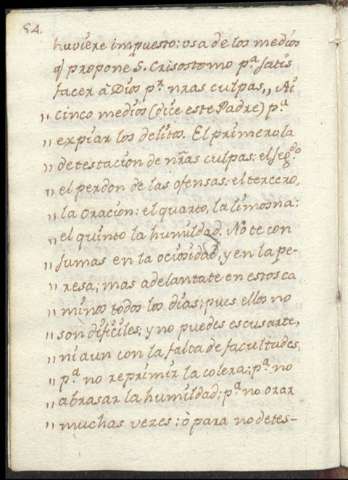 84.
huviere impuesto: usa de los medios
q̃ propone S. Crisostomo pª satis
facer à Dios pʳ nr̃as culpas,, Ai
,, cinco medios (dice este Padre) pª
,, expiar los delitos. El primero la
,, detestacion de nr̃as culpas: el segdo
,, el perdon de las ofensas: el tercero,
,, la Oracion: el quarto, la limosna:
,, el quinto la humildad. No te con
,, sumas en la ociosidad, y en la pe-
,, resa; mas adelantate en estos ca
,, minos todos los dias; pues ellos no
,, son dificiles; y no puedes escusarte,
,, ni aun con la falta de facultades
,, pª no reprimir la colera; pª no
,, abrasar la humildad; pª no orar
,, muchas veces: ò para no detes-